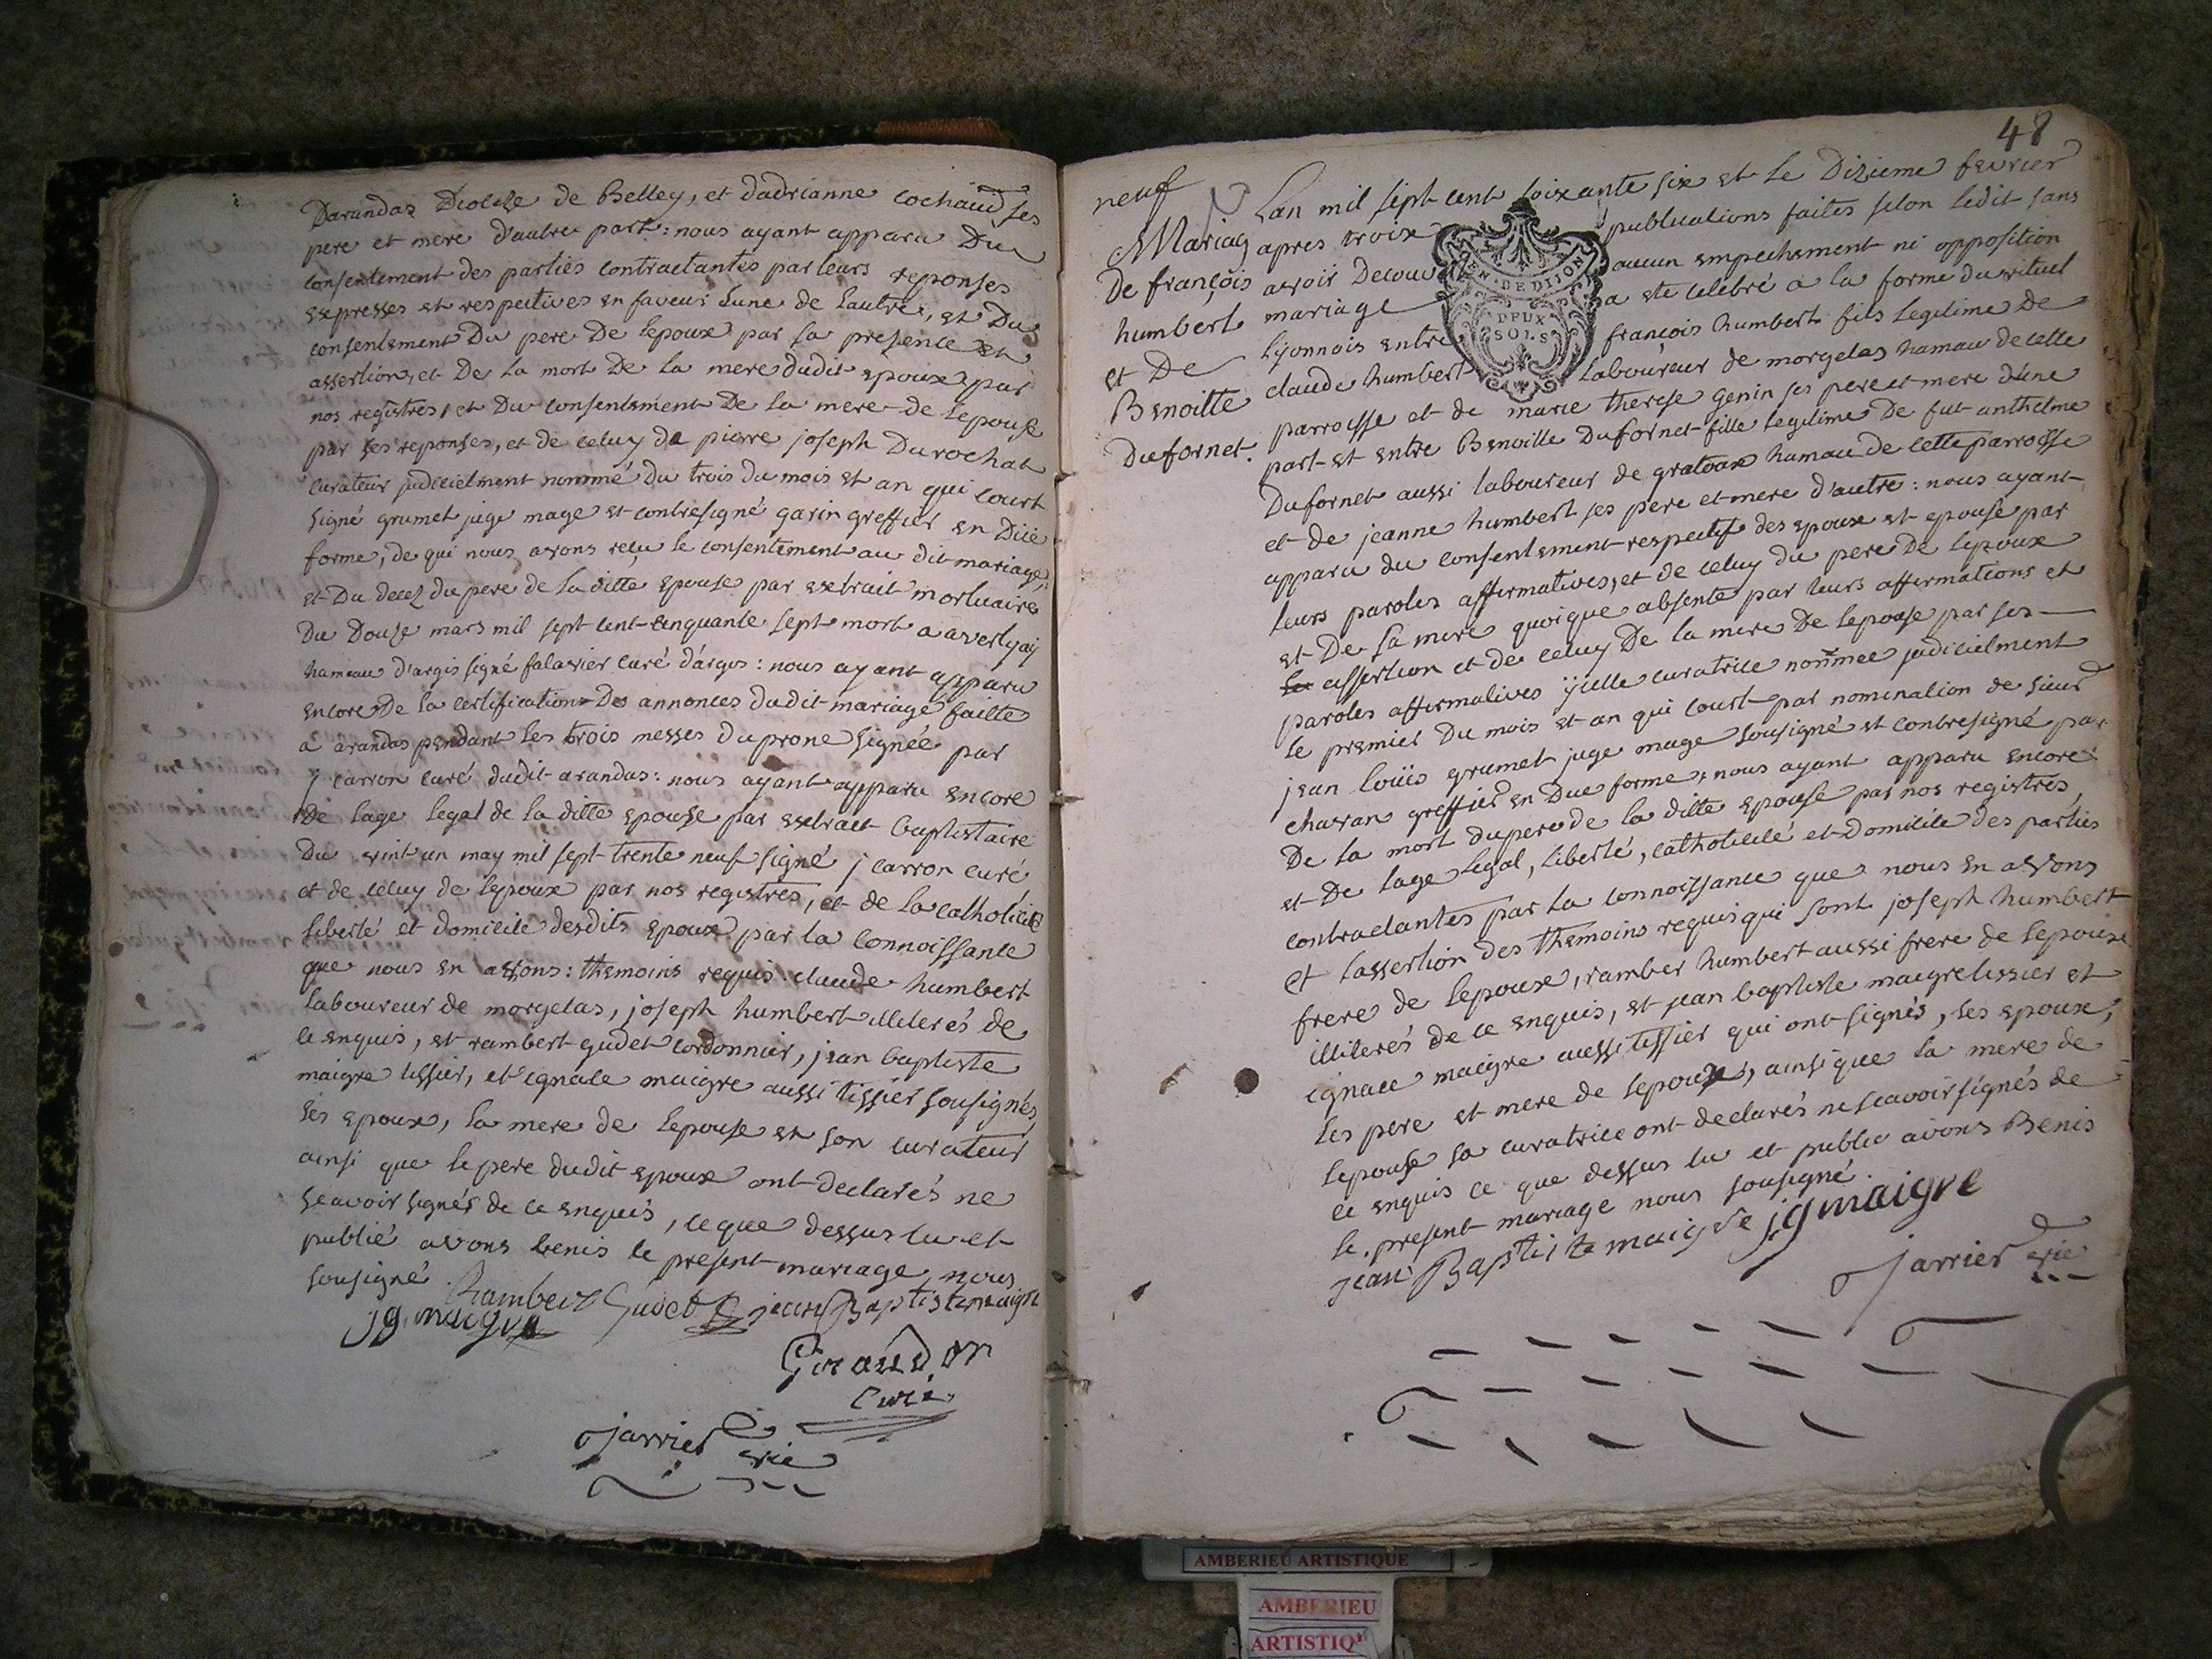 Darandas Diocese de Belley, et dadrianne cochaud ses
pere et mere d'autre part : nous ayant apparu Du
consentement des parties contractantes par leurs reponses
expresses et respectives en faveur Lune de Lautre, et Du
consentement Du pere De lepoux par sa presence et
assertion, et De la mort De la mere dudit epoux par
nos registres, et Du consentement De la mere de lepouse
par ses reponses, et de celuy de pierre joseph Durochat
curateur judicielment nommé Du trois du mois et an qui court
signé grumet juge mage et contresigné garin greffier en Düe
forme, de qui nous avons reçu le consentement au dit mariage,
et Du decez du pere de la ditte epouse par extrait mortuaire
Du Douze mars mil sept cent cinquante sept mort a averlyaj
hameau d'argis signé falavier curé d'argis : nous ayant apparu
encore De la certification Des annonces dudit mariage faitte
a arandas pendant les trois messes du prone signée par
j carron curé dudit arandas : nous ayant apparu encore
De lage legal de la ditte epouse par extrait baptistaire
Du vint un may mil sept trente neuf signé j carron curé
et de celuy de lepoux par nos registres, et de la catholicité
liberté et domicile desdits epoux par la connoissance
que nous en avons : themoins requis claude humbert
laboureur de morgelas, joseph humbert illiterés de
ce enquis, et rambert gudet cordonnier, jean baptiste
maigre tissier, et ignace maigre aussi tissier sousignés
les epoux, la mere de lepouse et son curateur
ainsi que le pere dudit epoux ont declarés ne
scavoir signés de ce enquis, ce que dessus lu et
publié avons benis le present mariage nous
sousigné. Rambert Gudet jean Baptiste maigre
jg. maigre
Giraudon
Curé
jarrier vic
48
neuf
Mariag
De françois
humbert
et De
Benoitte
Dufornet.
Lan mil sept cent soixante six et le Dizieme fevrier
apres troix publications faites selon ledit sans
avoir Decouv aucun empechement ni opposition
mariage a ete celebré a la forme du rituel
Lyonnois entre françois humbert fils legitime De
claude humbert Laboureur de morgelas hameau de cette
parroisse et de marie therese genin ses pere et mere d'une
part et entre Benoitte Dufornet fille legitime De fut anthelme
Dufornet aussi laboureur de gratoux hamau de cette parroisse
et de jeanne humbert ses pere et mere d'autre : nous ayant
apparu du consentement respectif des epoux et epouse par
leurs paroles affirmatives, et de celuy du pere De lepoux
et De sa mere quoique absente par leurs affirmations et
assertion et de celuy De la mere De lepouse par ses
paroles affirmatives ycelle curatrice nommee judicielment
le premier Du mois et an qui court par nomination de sieur
jean loüis grumet juge mage sousigné et contresigné par
charvan greffier en Due forme, nous ayant apparu encore
De la mort du pere de la ditte epouse par nos registres,
et De lage legal, liberté, catholicité et Domicile des parties
contractantes par la connoissance que nous en avons
et lassertion des themoins requis qui sont joseph humbert
frere de lepoux, ramber humbert aussi frere de lepoux
illiterés de ce enquis, et jean baptiste maigre tissier et
ignace maigre aussi tissier qui ont signés, les epoux,
les pere et mere de lepoux, ainsi que la mere de
lepouse sa curatrice ont declarés ne scavoir signés de
ce enquis ce que dessus lu et publié avons Benis
le present mariage nous sousigné.
jean Baptiste maigre jg maigre
jarrier vic
GEN. DE DIJON
DEUX
SOLS
AMBERIEU ARTISTIQUE
AMBERIEU
ARTISTIQ